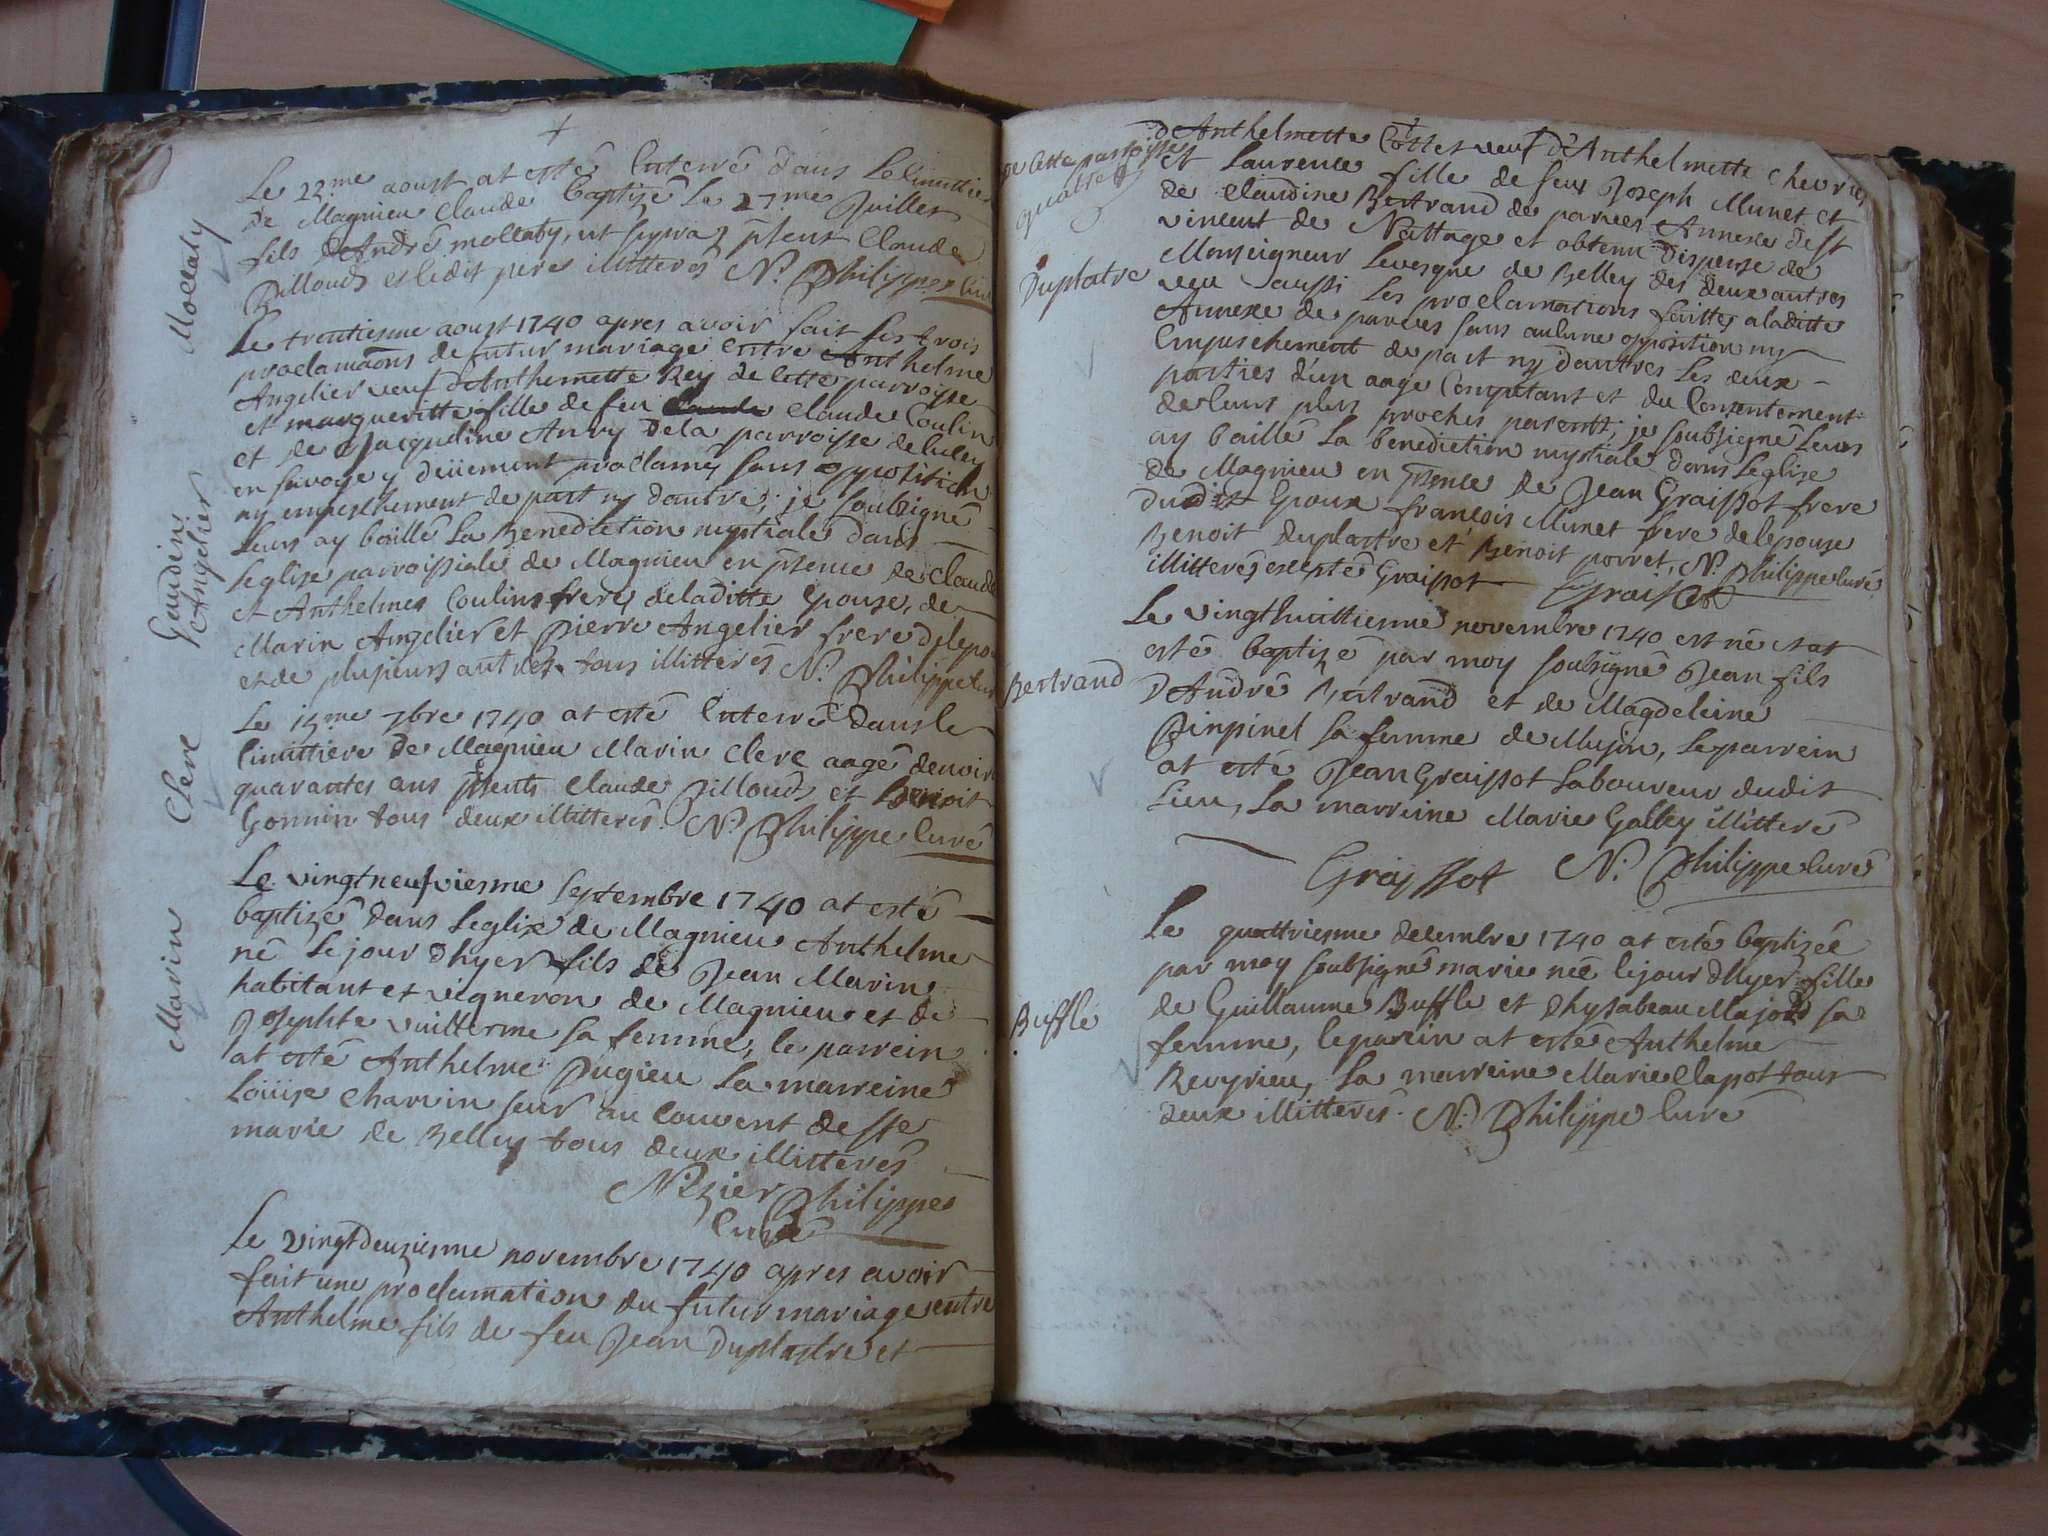 Mollaty
Le 22me aoust at esté Enterré dans Le Cimittier
De Magnieu Claude Baptizé Le 27me Juillet
fils d'André mollaty, ut supra, pñent Claude
Billoud et ledit pere illitterés N. Philippe Curé
Gaudin
Angelier
Le trentiesme aoust 1740 apres avoir fait les trois
proclamaõns de futur mariage entre Anthelme
Angelier veuf d'Anthemette Rey de cette parroisse
et margueritte fille de feu Claude Coulin
et de Jacqueline Anry de la parroisse de
en savoye y deüement proclamés sans opposition
ny empeschement de part ny dautre; je soubsigné
Leurs ay baillé La Benediction nuptiale dans
Leglise parroissiale de Magnieu en pñence de Claude
et Anthelme Coulin freres de laditte Epouse, de
Marin Angelier et Pierre Angelier frere de lepoux
et de plusieurs autres tous illitterés N. Philippe Curé
Clerc
Le 15me 7bre 1740 at esté Enterré dans le
Cimittiere de Magnieu Marin Clerc aagé denviron
quarantes ans pñents Claude Billoud et Benoit
Gonnin tous deux illitterés. N. Philippe Curé
Marin
Le vingtneufviesme septembre 1740 at esté
baptizé dans Leglise de Magnieu Anthelme
né Le jour d'hyer fils de Jean Marin
habitant et vigneron de Magnieu et de
Josephte vuillerme sa femme, le parrein
at esté Anthelme Dugieu La marreine
Loüise Charvin seur au Couvent de Ste
marie de Belley tous deux illitterés
Nizier Philippe
Curé
Le vingtdeuziesme novembre 1740 apres avoir
fait une proclamation du futur mariage entre
Anthelme fils de feu Jean Duplastre et
de Cette parroisse
Duplatre
d'Anthelmette Costes veuf d'Anthelmette Chevrier
et Laurence fille de feu Joseph Munet et
de Claudine Bertrand de parves Annexe de St
vincent de Nattage et obtenu dispense de
Monseigneur Levesque de Belley des deux autres
veu aussi Les proclamations faittes a laditte
Annexe de parves sans aulcune opposition ny
Empeschement de part ny dautres Les deux
parties d'un aage Compétant et du Consentement
de leurs plus proches parents, je soubsigné Leurs
ay baillé La benediction nuptiale dans Leglise
de Magnieu en pñence de Jean Graissot frere
dudit Epoux françois Munet frere de lepouse
Benoit duplastre et Benoit porret, N. Philippe Curé
illitterés excepté Graissot Graissot
Bertrand
Le vingthuittiesme novembre 1740 est né et at
esté baptizé par moy soubsigné Jean fils
d'André Bertrand et de Magdeleine
Pinpinel sa femme de Musin, Le parrein
at esté Jean Graissot Laboureur dudit
Lieu, La marreine Marie Galley illitteré
Graissot N. Philippe Curé
Buffle
Le quattriesme decembre 1740 at esté baptizée
par moy soubsigné marie née le jour d'hyer fille
de Guillaume Buffle et d'hysabeau Majod sa
femme, le parein at esté Anthelme
Reuyrieu, La marreine Marie Clapot tous
deux illitterés. N. Philippe Curé